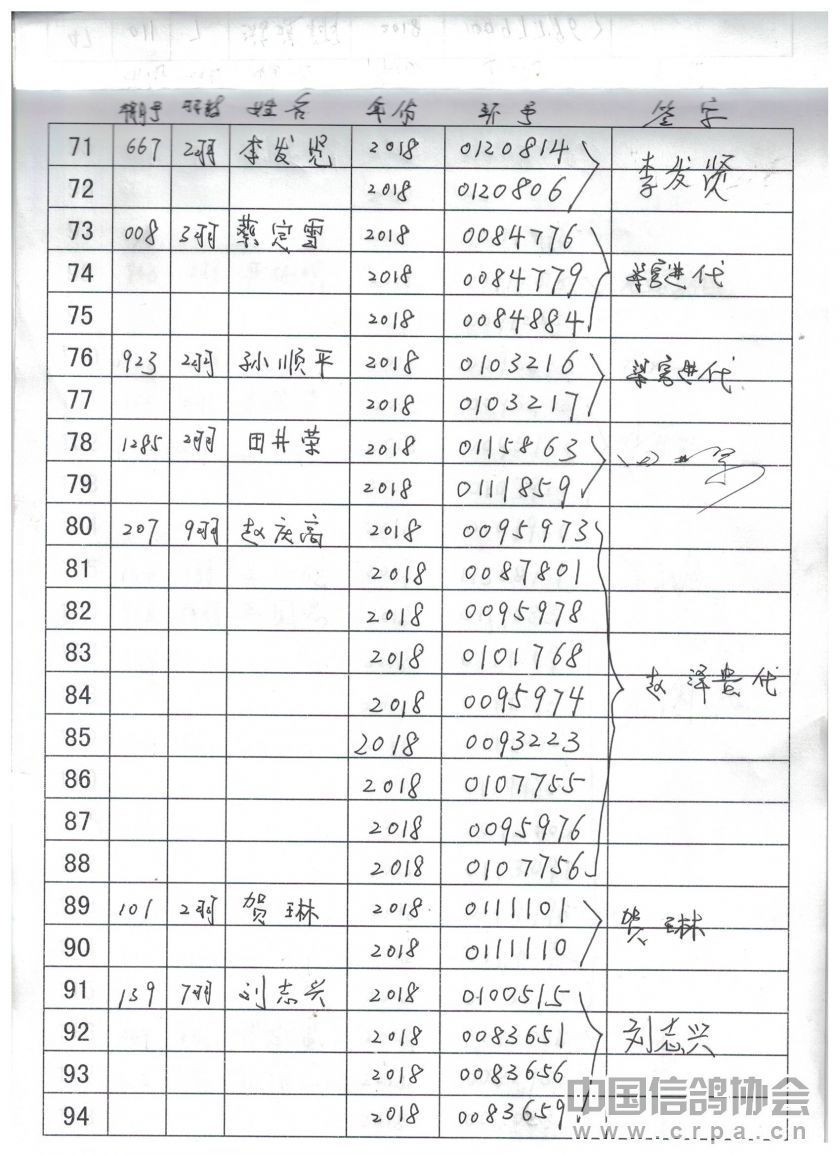 棚号 羽数 姓名 年份 环号 签字
71 667 2羽 李发贤 2018 0120814 李发贤
72 2018 0120806
73 008 3羽 蔡定雪 2018 0084776
74 2018 0084779 进代
75 2018 0084884
76 923 2羽 孙顺平 2018 0103216 进代
77 2018 0103217
78 1285 2羽 田井荣 2018 0115863
79 2018 0111859
80 207 9羽 赵庆高 2018 0095973
81 2018 0087801
82 2018 0095978
83 2018 0101768
84 2018 0095974 赵泽贵代
85 2018 0093223
86 2018 0107755
87 2018 0095976
88 2018 0107756
89 101 2羽 贺琳 2018 0111101 贺琳
90 2018 0111110
91 139 7羽 刘志兴 2018 0100515
92 2018 0083651 刘志兴
93 2018 0083656
94 2018 0083659
中国信鸽协会
www.crpa.cn